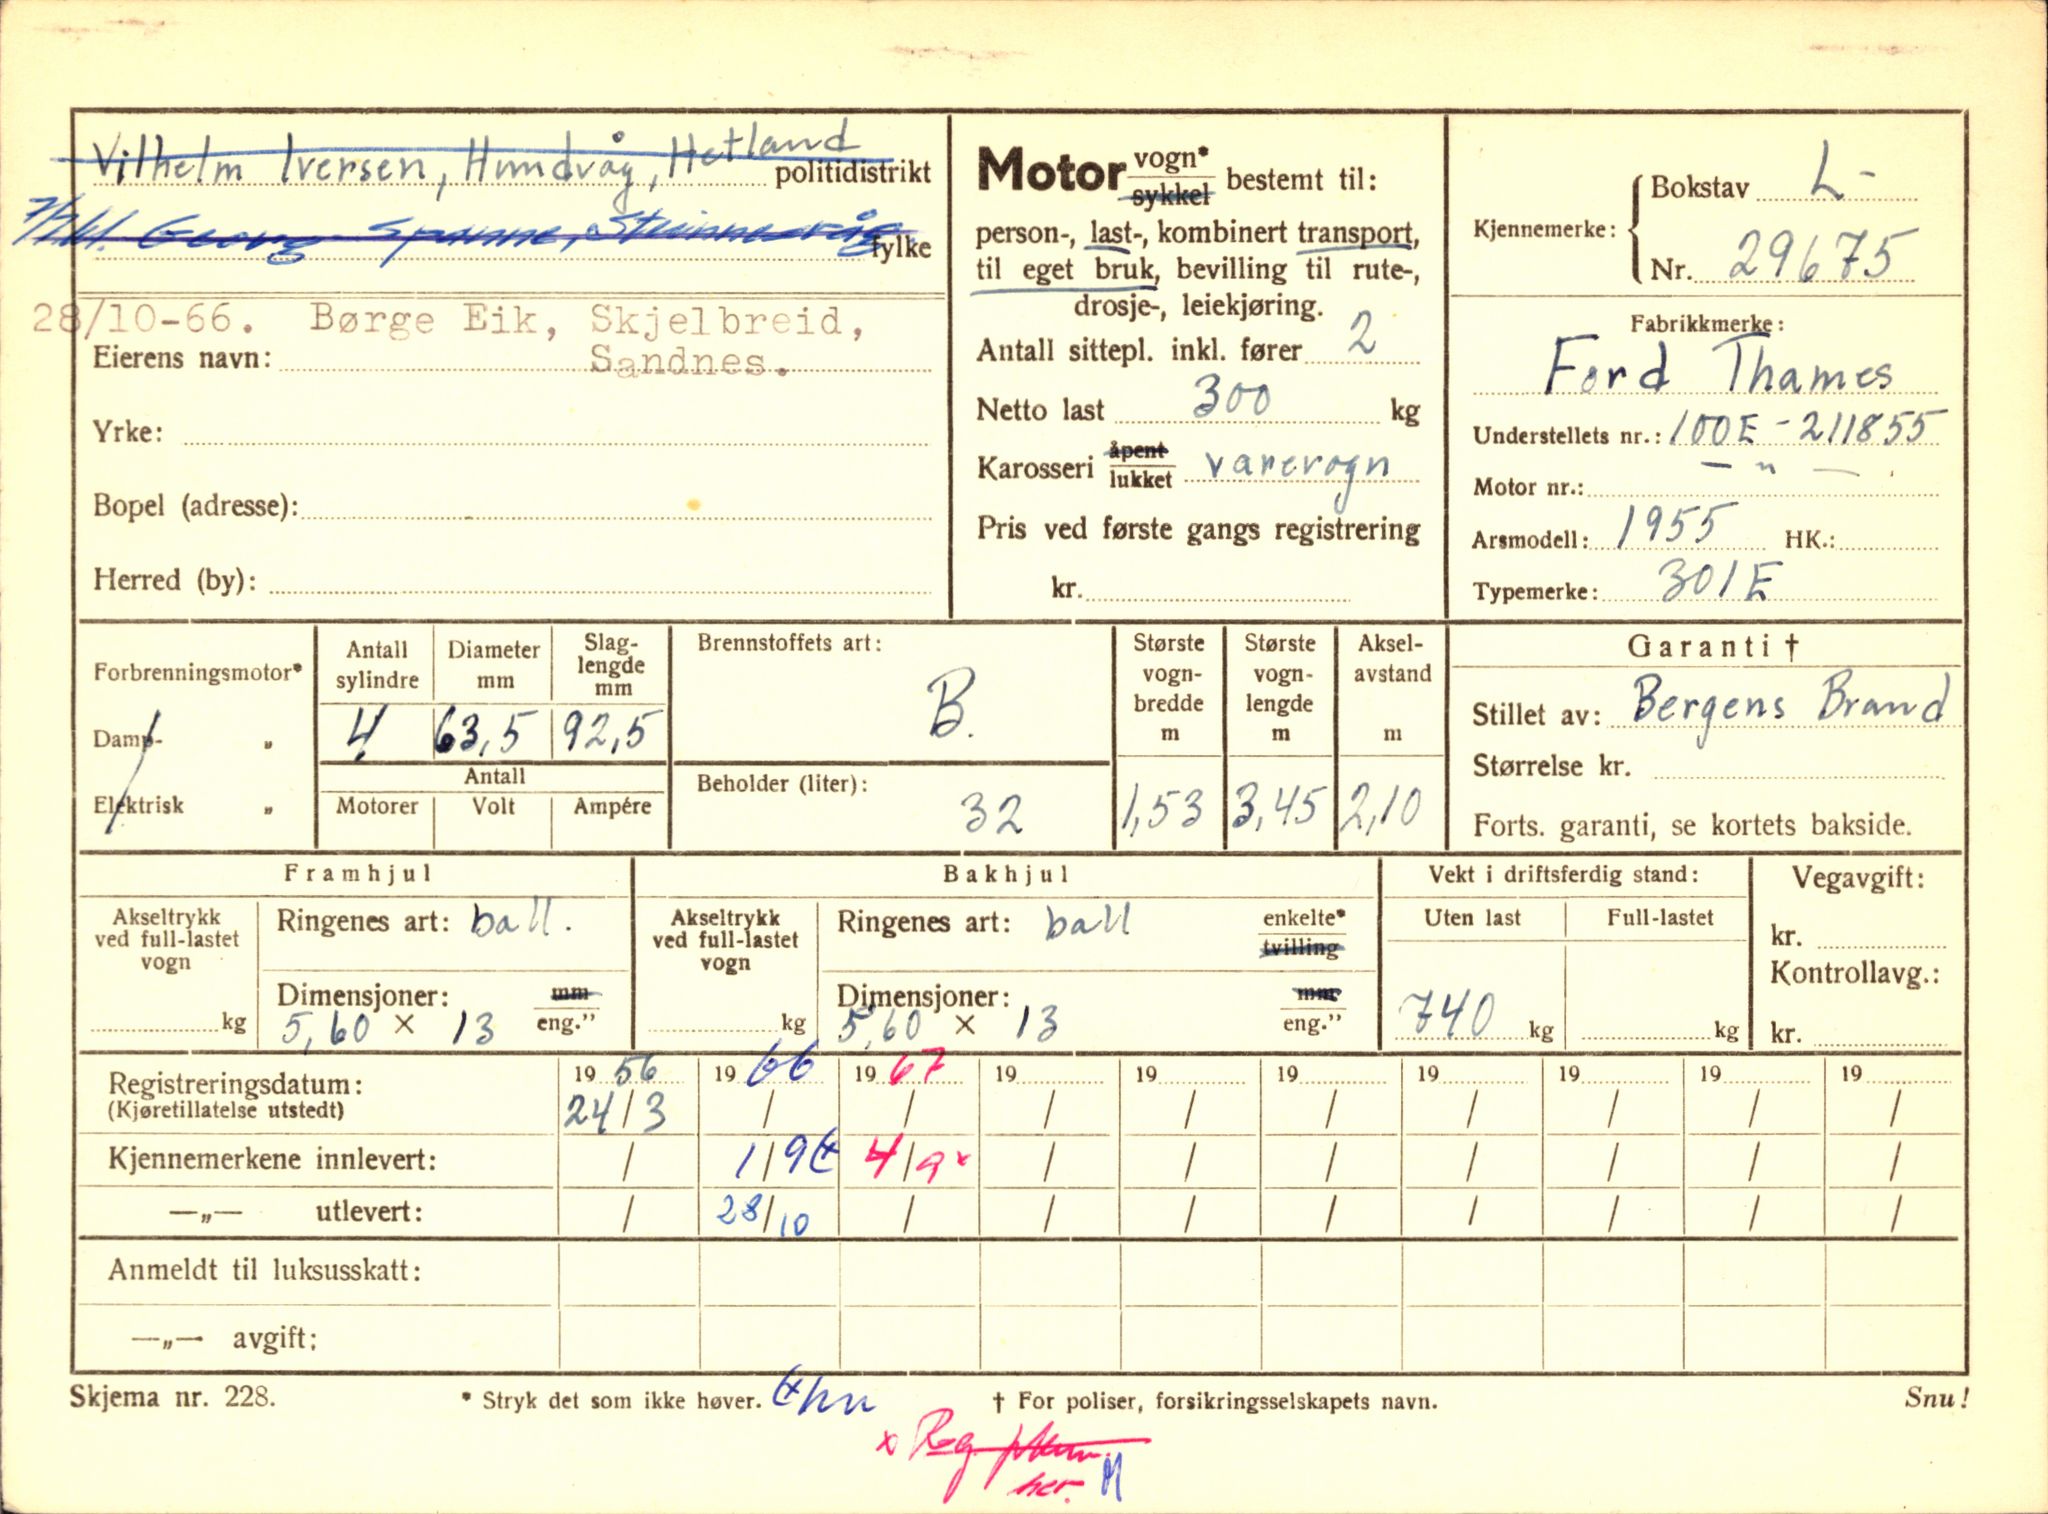 Vilhelm Iversen, Hundvåg, Hetland politidistrikt
Georg fylke
28/10-66. Børge Eik, Skjelbreid,
Eierens navn: Sandnes.
Yrke:
Bopel (adresse):
Herred (by):
Motor vogn* sykkel bestemt til:
person-, last-, kombinert transport,
til eget bruk, bevilling til rute-,
drosje-, leiekjøring.
Antall sittepl. inkl. fører 2
Netto last 300 kg
Karosseri åpent lukket varevogn
Pris ved første gangs registrering
kr.
Kjennemerke: Bokstav L-
Nr. 29675
Fabrikkmerke:
Ford Thames
Understellets nr.: 100E-211855
Motor nr.: — " —
Arsmodell: 1955 HK.:
Typemerke: 301E
Forbrenningsmotor*
Damp- „
Elektrisk „
Antall sylindre
Diameter mm
Slag-lengde mm
4 63,5 92,5
Antall
Motorer Volt Ampére
Brennstoffets art:
B.
Beholder (liter):
32
Største vogn-bredde m
Største vogn-lengde m
Aksel-avstand m
1,53 3,45 2,10
Garanti †
Stillet av: Bergens Brand
Størrelse kr.
Forts. garanti, se kortets bakside.
Framhjul
Akseltrykk ved full-lastet vogn
kg
Ringenes art: ball.
Dimensjoner: mm
5,60 × 13 eng."
Bakhjul
Akseltrykk ved full-lastet vogn
kg
Ringenes art: ball enkelte* tvilling
Dimensjoner: mm
5,60 × 13 eng."
Vekt i driftsferdig stand:
Uten last Full-lastet
740 kg kg
Vegavgift:
kr.
Kontrollavg.:
kr.
Registreringsdatum: 19 56 19 66 19 67 19 19 19 19 19 19 19
(Kjøretillatelse utstedt) 24/3 / / / / / / / / /
Kjennemerkene innlevert: / 1/9 4/9 x / / / / / / /
—„— utlevert: / 28/10 / / / / / / / /
Anmeldt til luksusskatt:
—„— avgift:
Skjema nr. 228. * Stryk det som ikke høver. † For poliser, forsikringsselskapets navn. Snu!
x Reg.
M